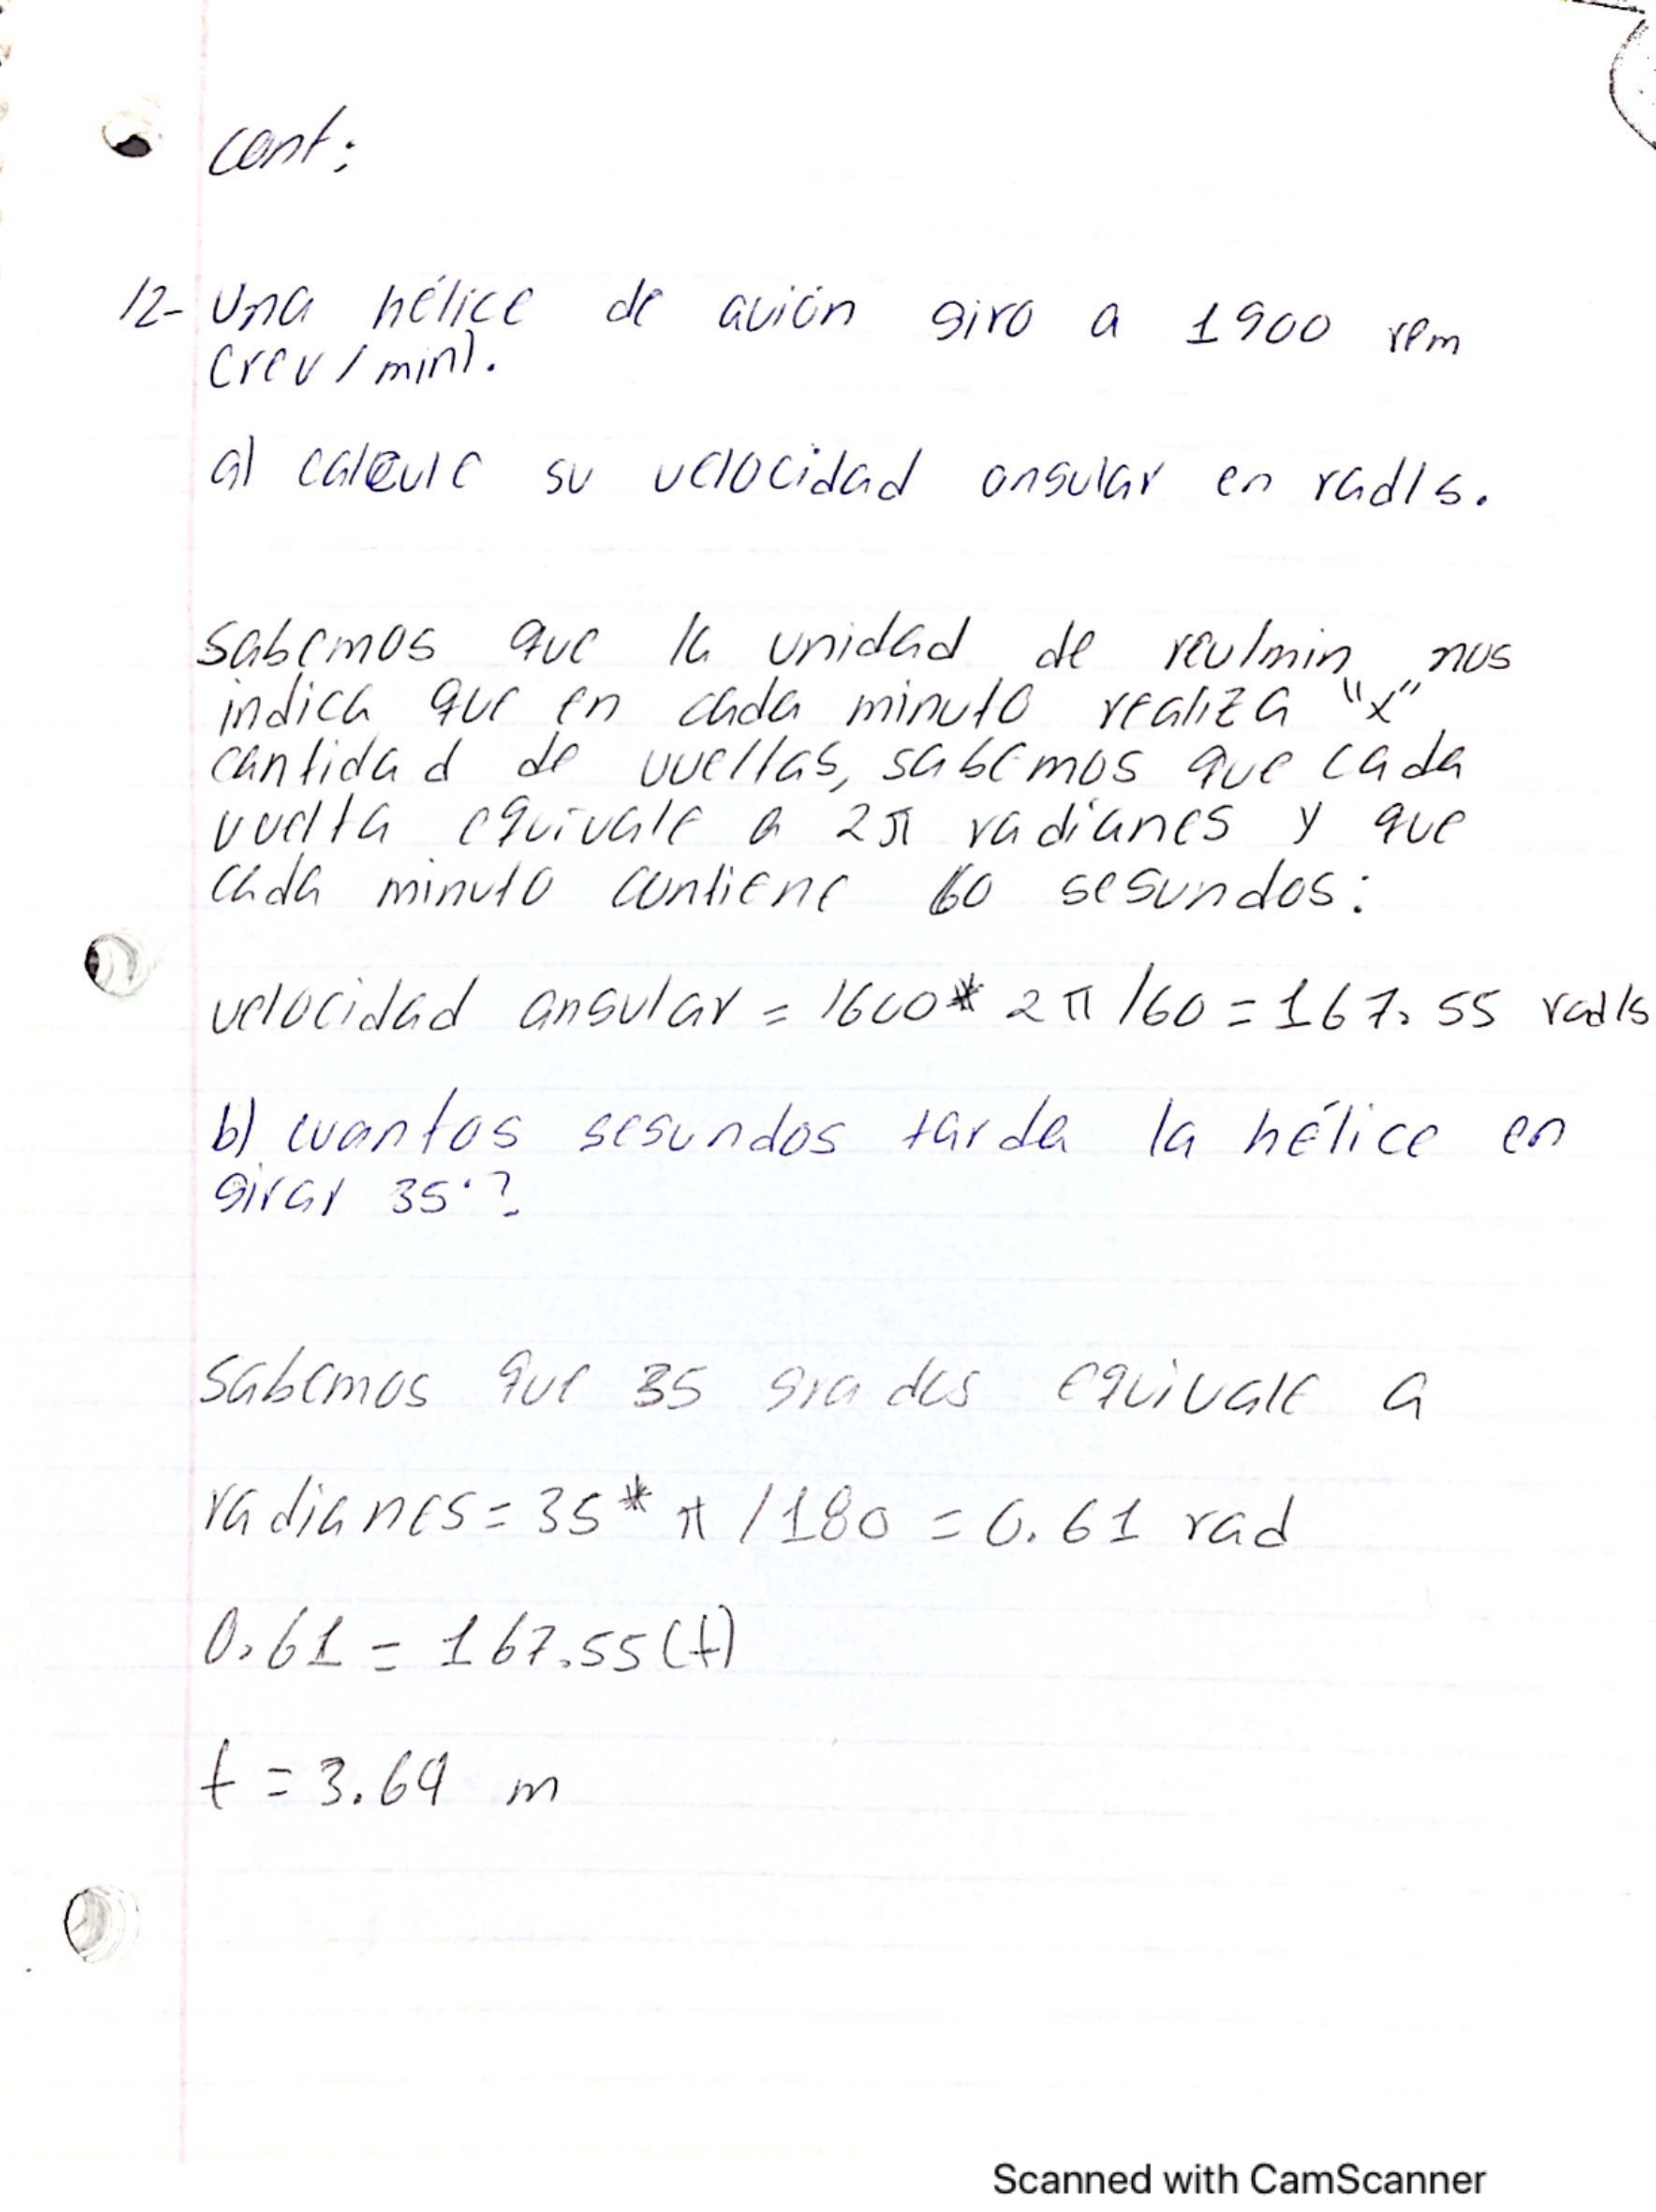 cont:
12- Una hélice de avión giro a 1900 rpm
(rev/min).
a) calcule su velocidad angular en rad/s.
sabemos que la unidad de rev/min nos
indica que en cada minuto realiza "x"
cantidad de vueltas, sabemos que cada
vuelta equivale a 2π radianes y que
cada minuto contiene 60 segundos:
velocidad angular = 1600 * 2π /60 = 167.55 rad/s
b) cuantos segundos tarda la hélice en
girar 35°?
sabemos que 35 grados equivale a
radianes = 35 * π /180 = 0.61 rad
0.61 = 167.55(t)
t = 3.64 m
Scanned with CamScanner